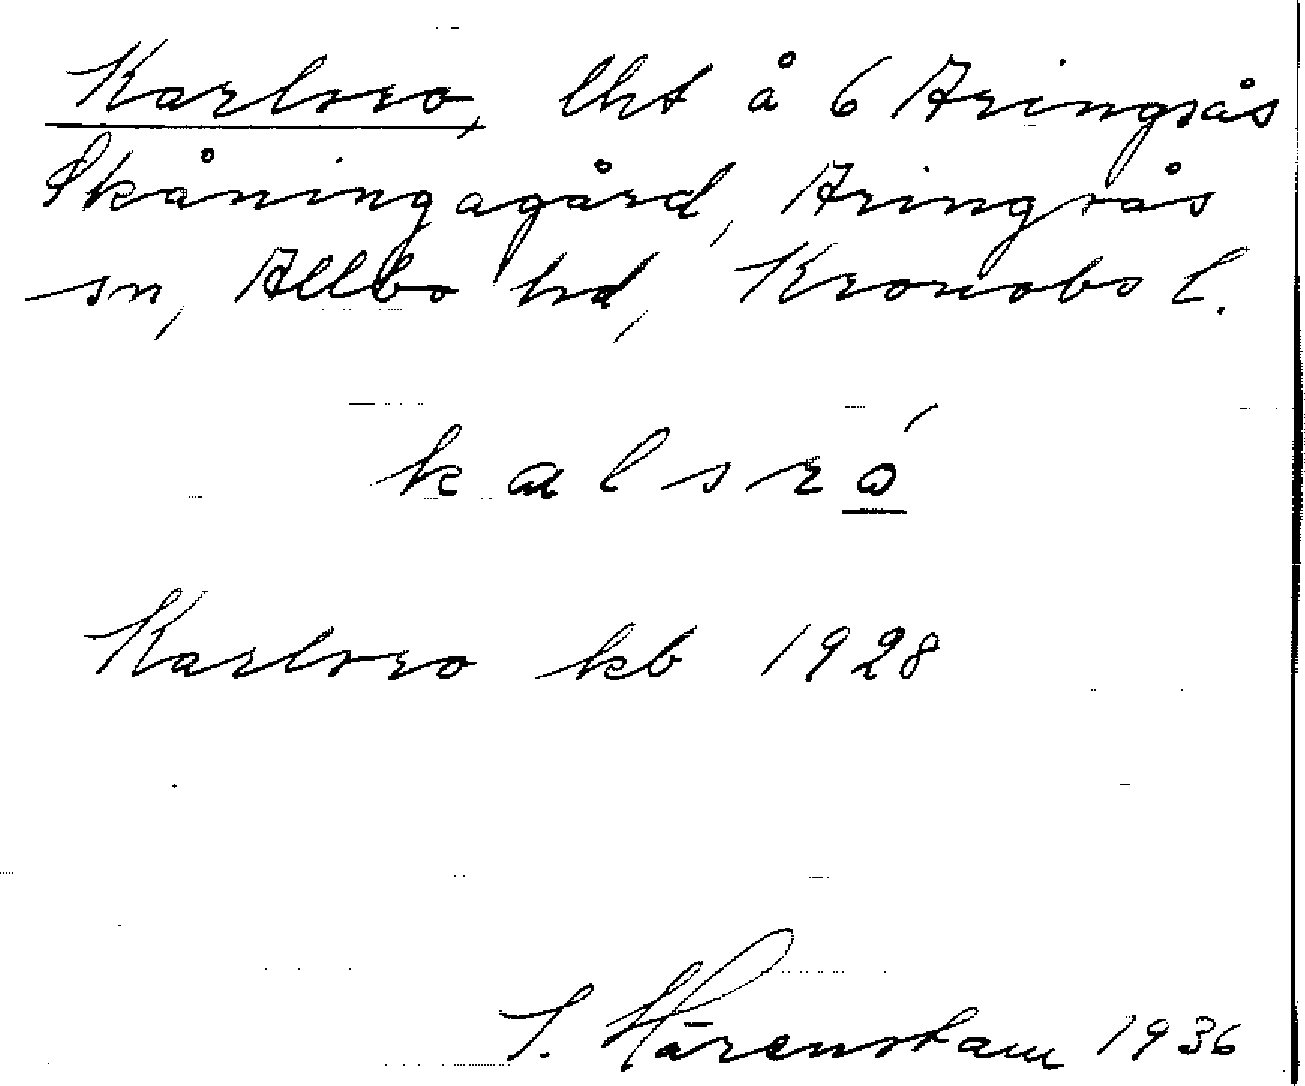 Karlsro, lht å 6 Aringsås
Skåningagård, Aringsås
sn, Allbo hd, Kronobs l.
kalsró
Karlsro kb 1928
S. Härenstam 1936